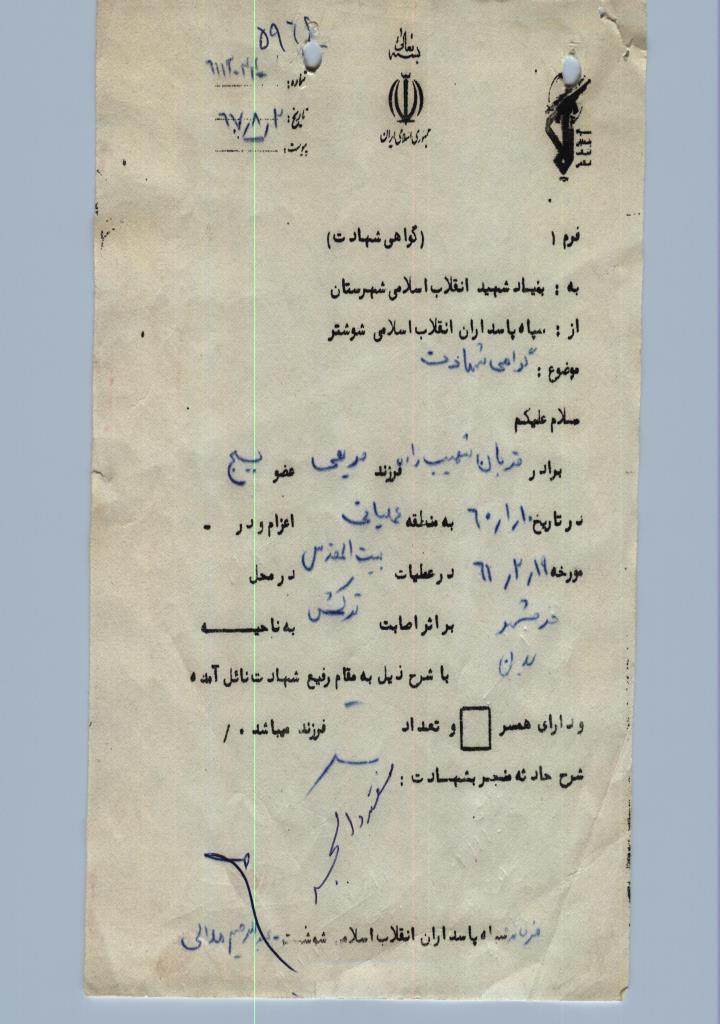 بسمه تعالی
جمهوری اسلامی ایران
شماره:
تاریخ: ۶۷/۸/۲
پیوست:
فرم ۱ (گواهی شهادت)
به : بنیاد شهید انقلاب اسلامی شهرستان
از : سپاه پاسداران انقلاب اسلامی شوشتر
موضوع : گواهی شهادت
سلام علیکم
برادر قربان فرزند عضو بسیج
در تاریخ ۶۰/۱/۱۰ به منطقه عملیاتی اعزام و در -
مورخه ۶۱/۲/۱۹ در عملیات بیت المقدس در محل
خرمشهر بر اثر اصابت ترکش به ناحیه
بدن با شرح ذیل به مقام رفیع شهادت نائل آمده
و دارای همسر و تعداد - فرزند میباشد ۰/
شرح حادثه منجر بشهادت :
مفقود الجسد
فرمانده سپاه پاسداران انقلاب اسلامی شوشتر -